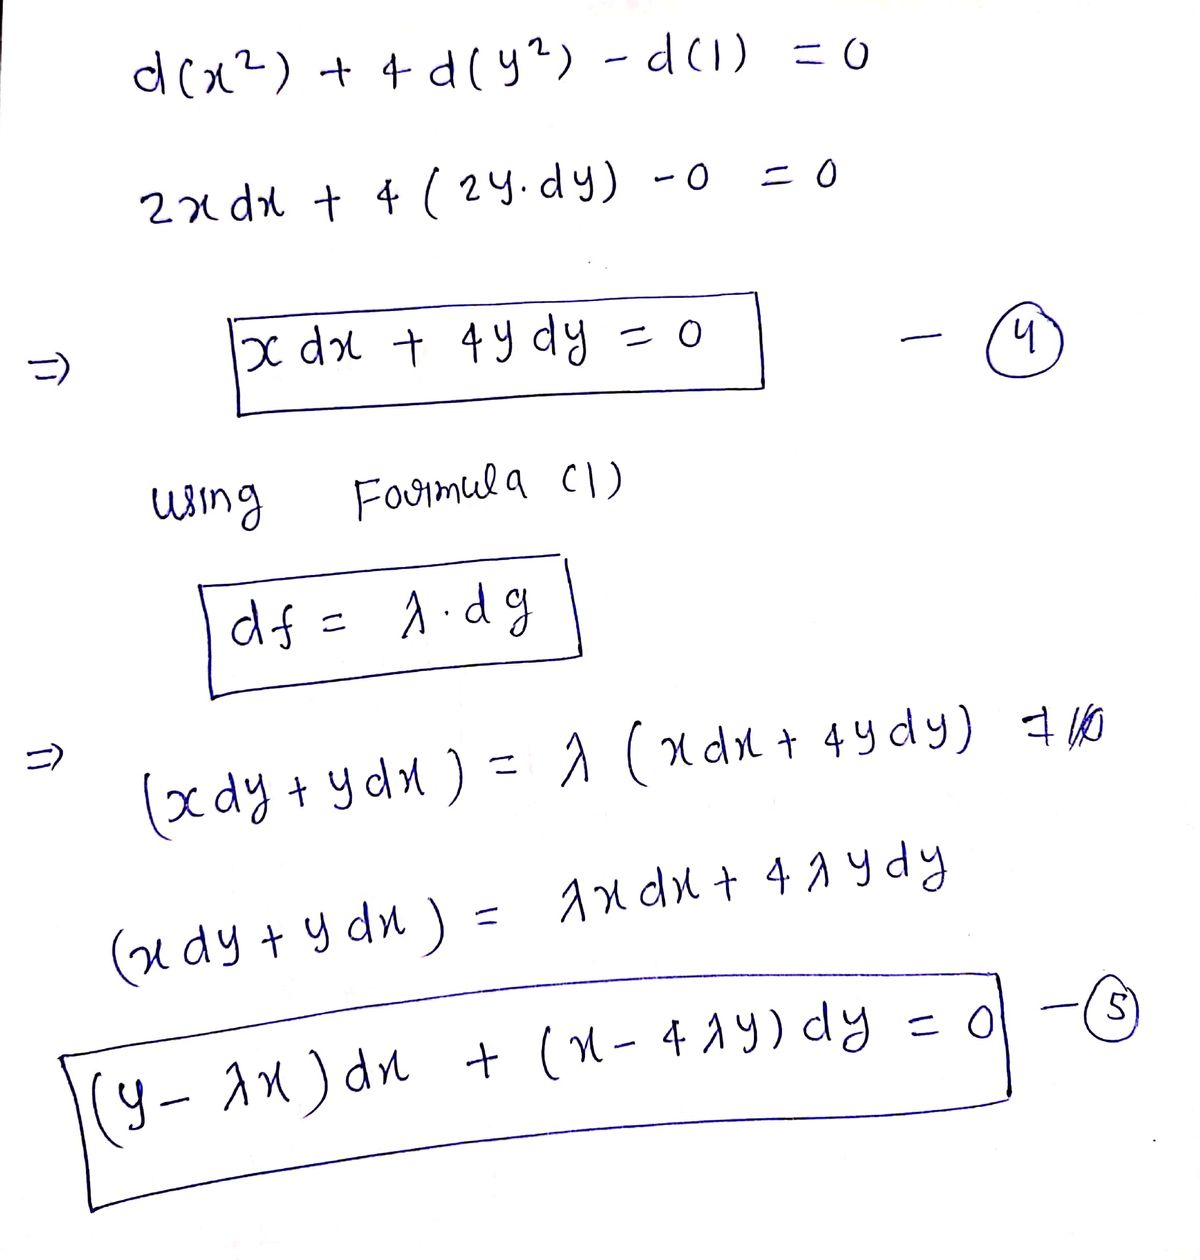 d(x²) + 4d(y²) - d(1) = 0
2x dx + 4(2y.dy) - 0 = 0
⇒ x dx + 4y dy = 0 - ④
using Formula (1)
df = λ.dg
⇒ (x dy + y dx) = λ (x dx + 4y dy)
(x dy + y dx) = λx dx + 4λy dy
(y - λx) dx + (x - 4λy) dy = 0 - ⑤